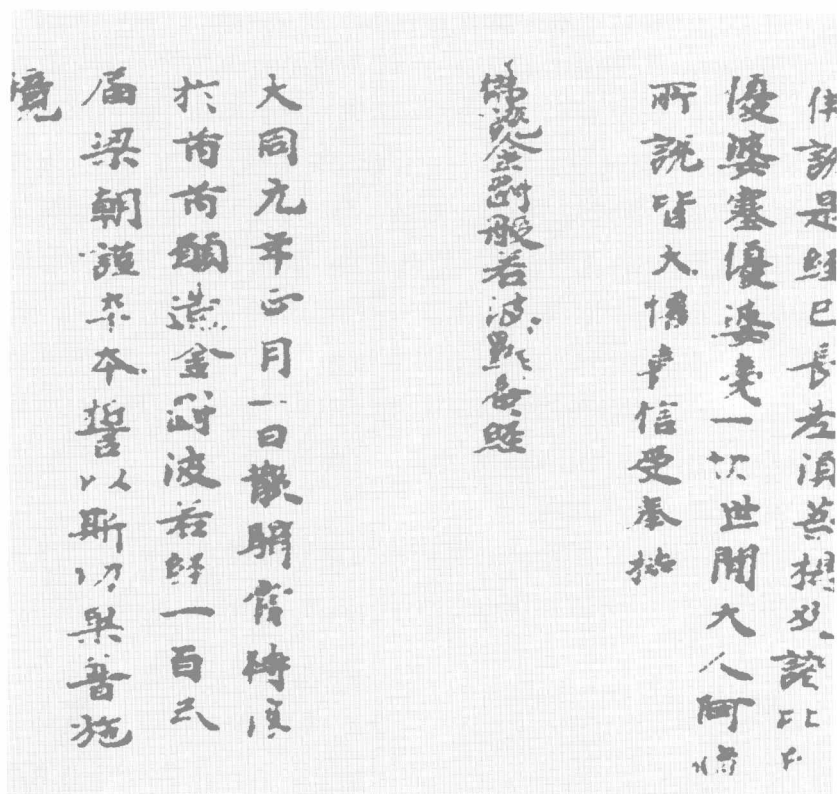 佛說是經已長老須菩提及諸比丘
優婆塞優婆夷一切世間大人阿脩
所說皆大懽喜信受奉持
佛說金剛般若波羅蜜經
大同元年正月一日散騎常侍淳
於芮芮願造金剛波若經一百弍
届梁朝謹卒本誓以斯功果普施
境